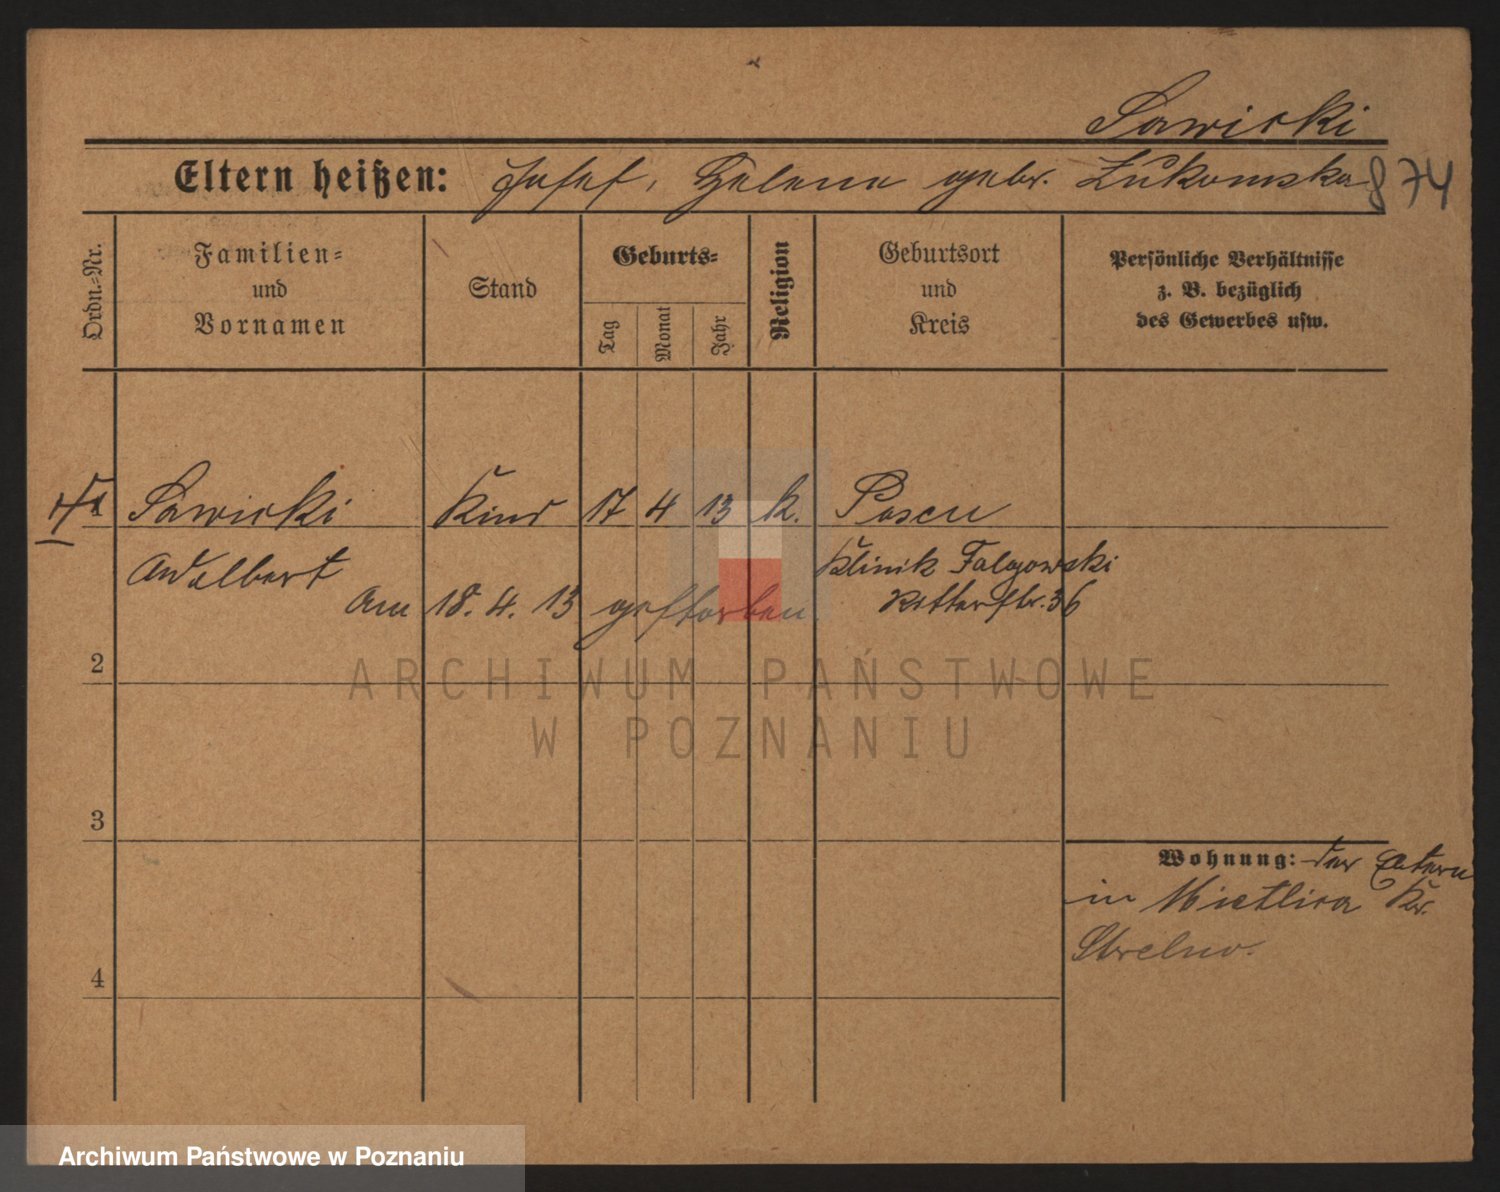 Sawicki
Eltern heißen: Josef, Helene gebr. Lukomska 874
Ordn.-Nr.
Familien-
und
Vornamen
Stand
Geburts-
Tag
Monat
Jahr
Religion
Geburtsort
und
Kreis
Persönliche Verhältnisse
z. B. bezüglich
des Gewerbes usw.
1 Sawicki Kind 17 4 13 k. Posen
Adalbert Klinik Falgowski
Am 18. 4. 13 gestorben. Ritterstr. 36
2
3
Wohnung: der Eltern
in Mietlica Kr.
Strelno.
4
ARCHIWUM PAŃSTWOWE
W POZNANIU
Archiwum Państwowe w Poznaniu